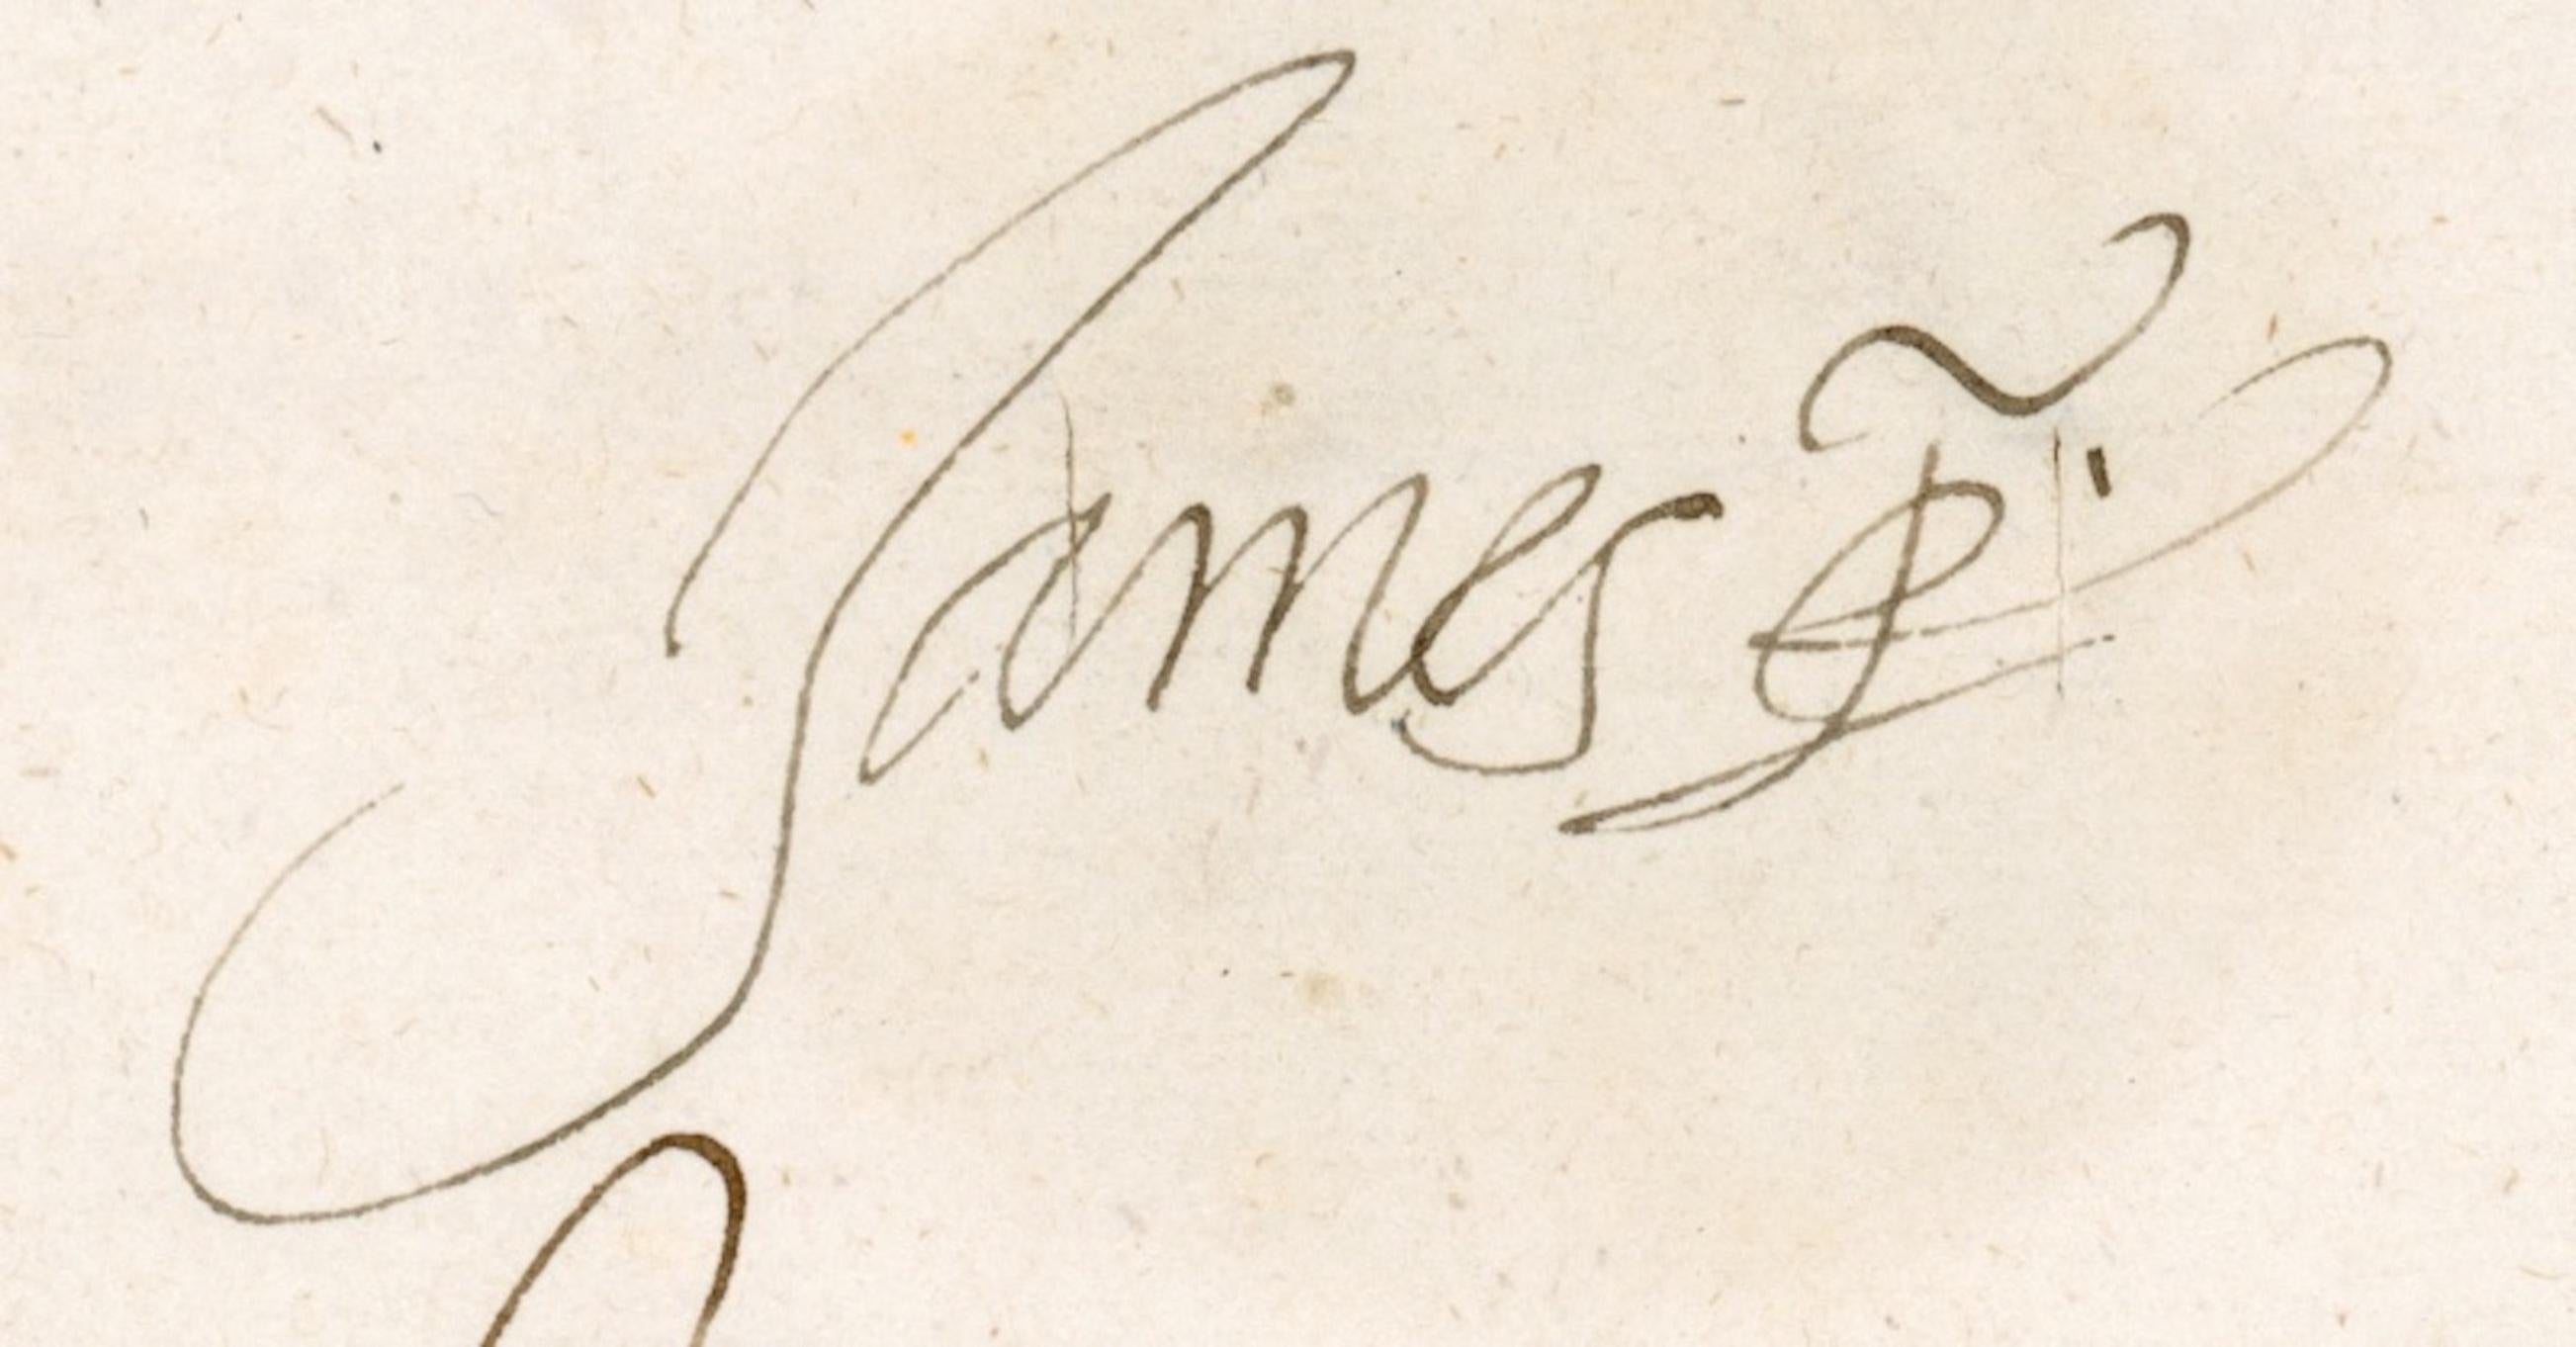 James R.